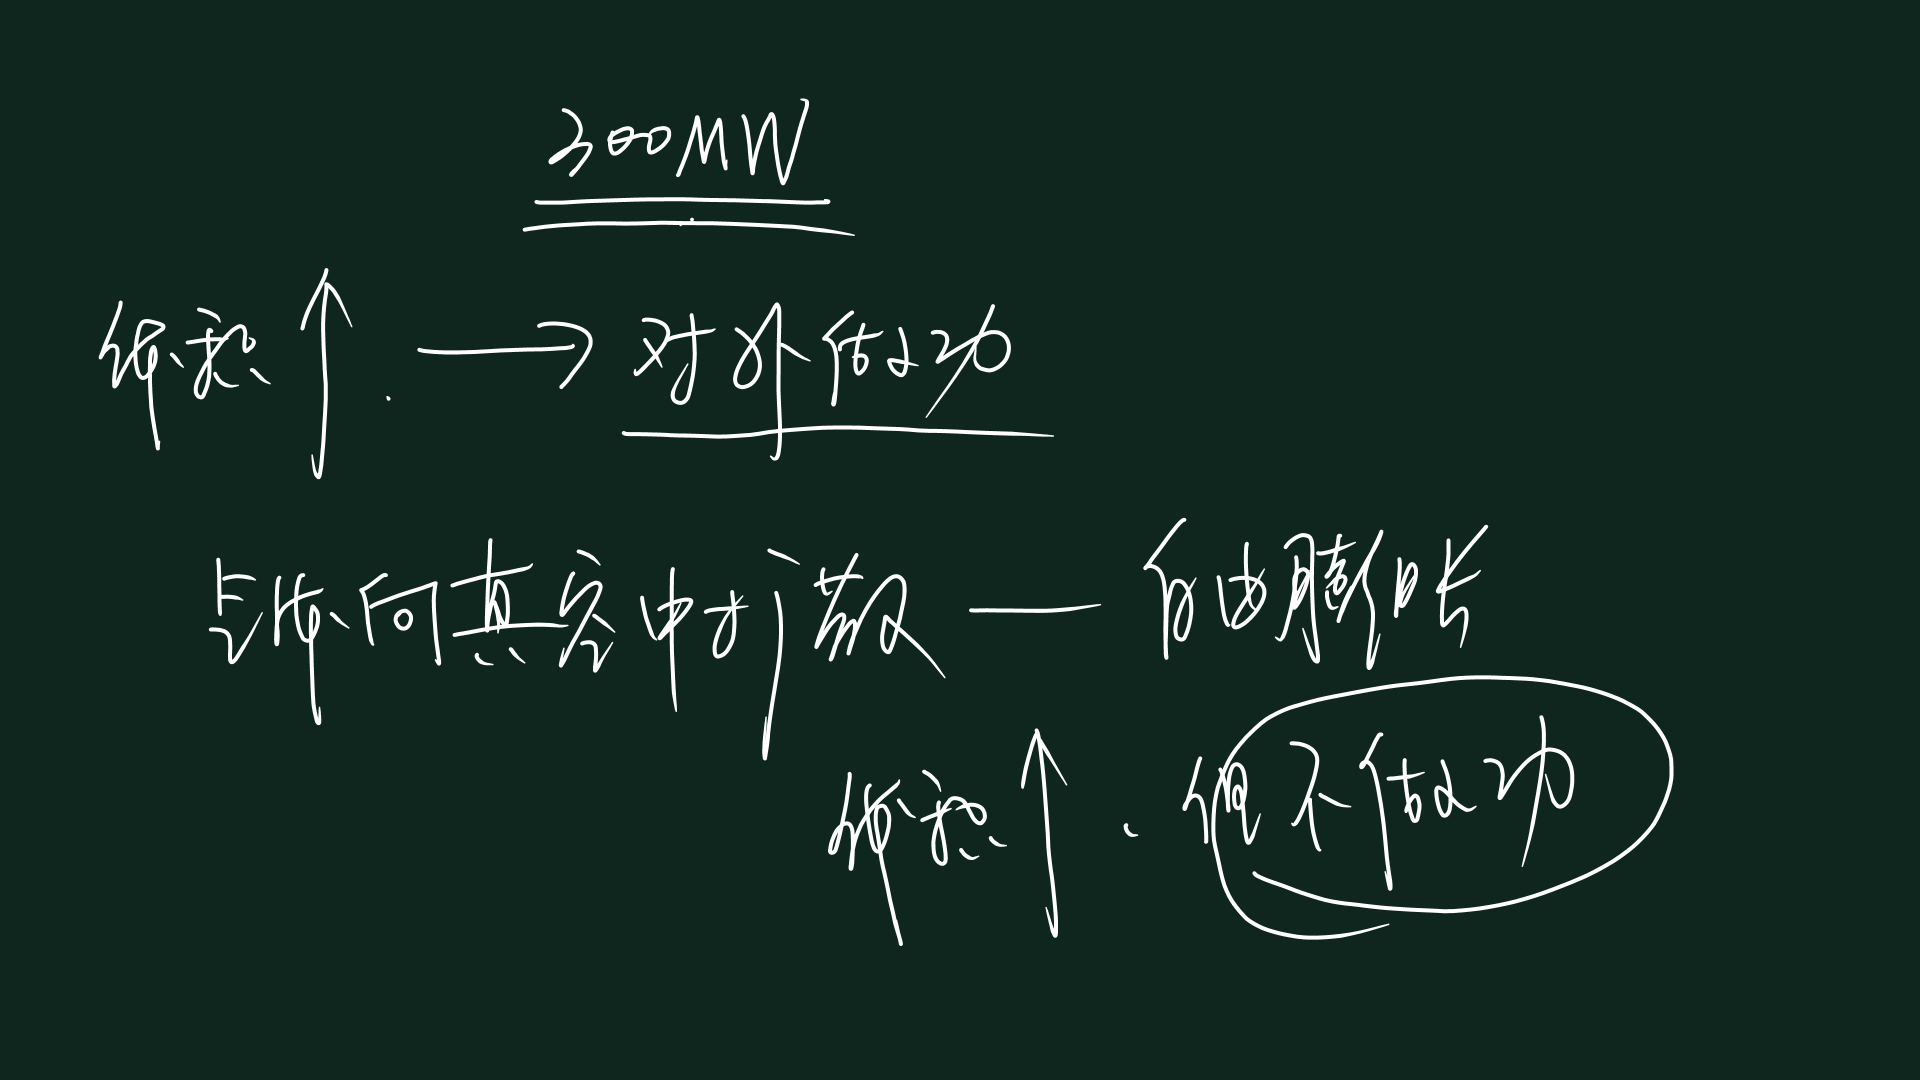 300MW
体积↑. → 对外做功
气体向真空中扩散 — 自由膨胀
体积↑、但不做功